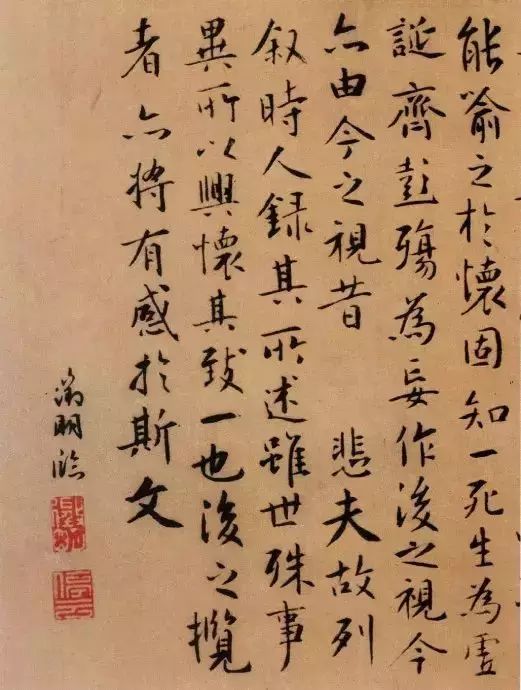 能喻之於懷固知一死生為虛
誕齊彭殤為妄作後之視今
亦由今之視昔 悲夫故列
叙時人録其所述雖世殊事
異所以興懷其致一也後之攬
者亦將有感於斯文
徵明臨
徵明
停云